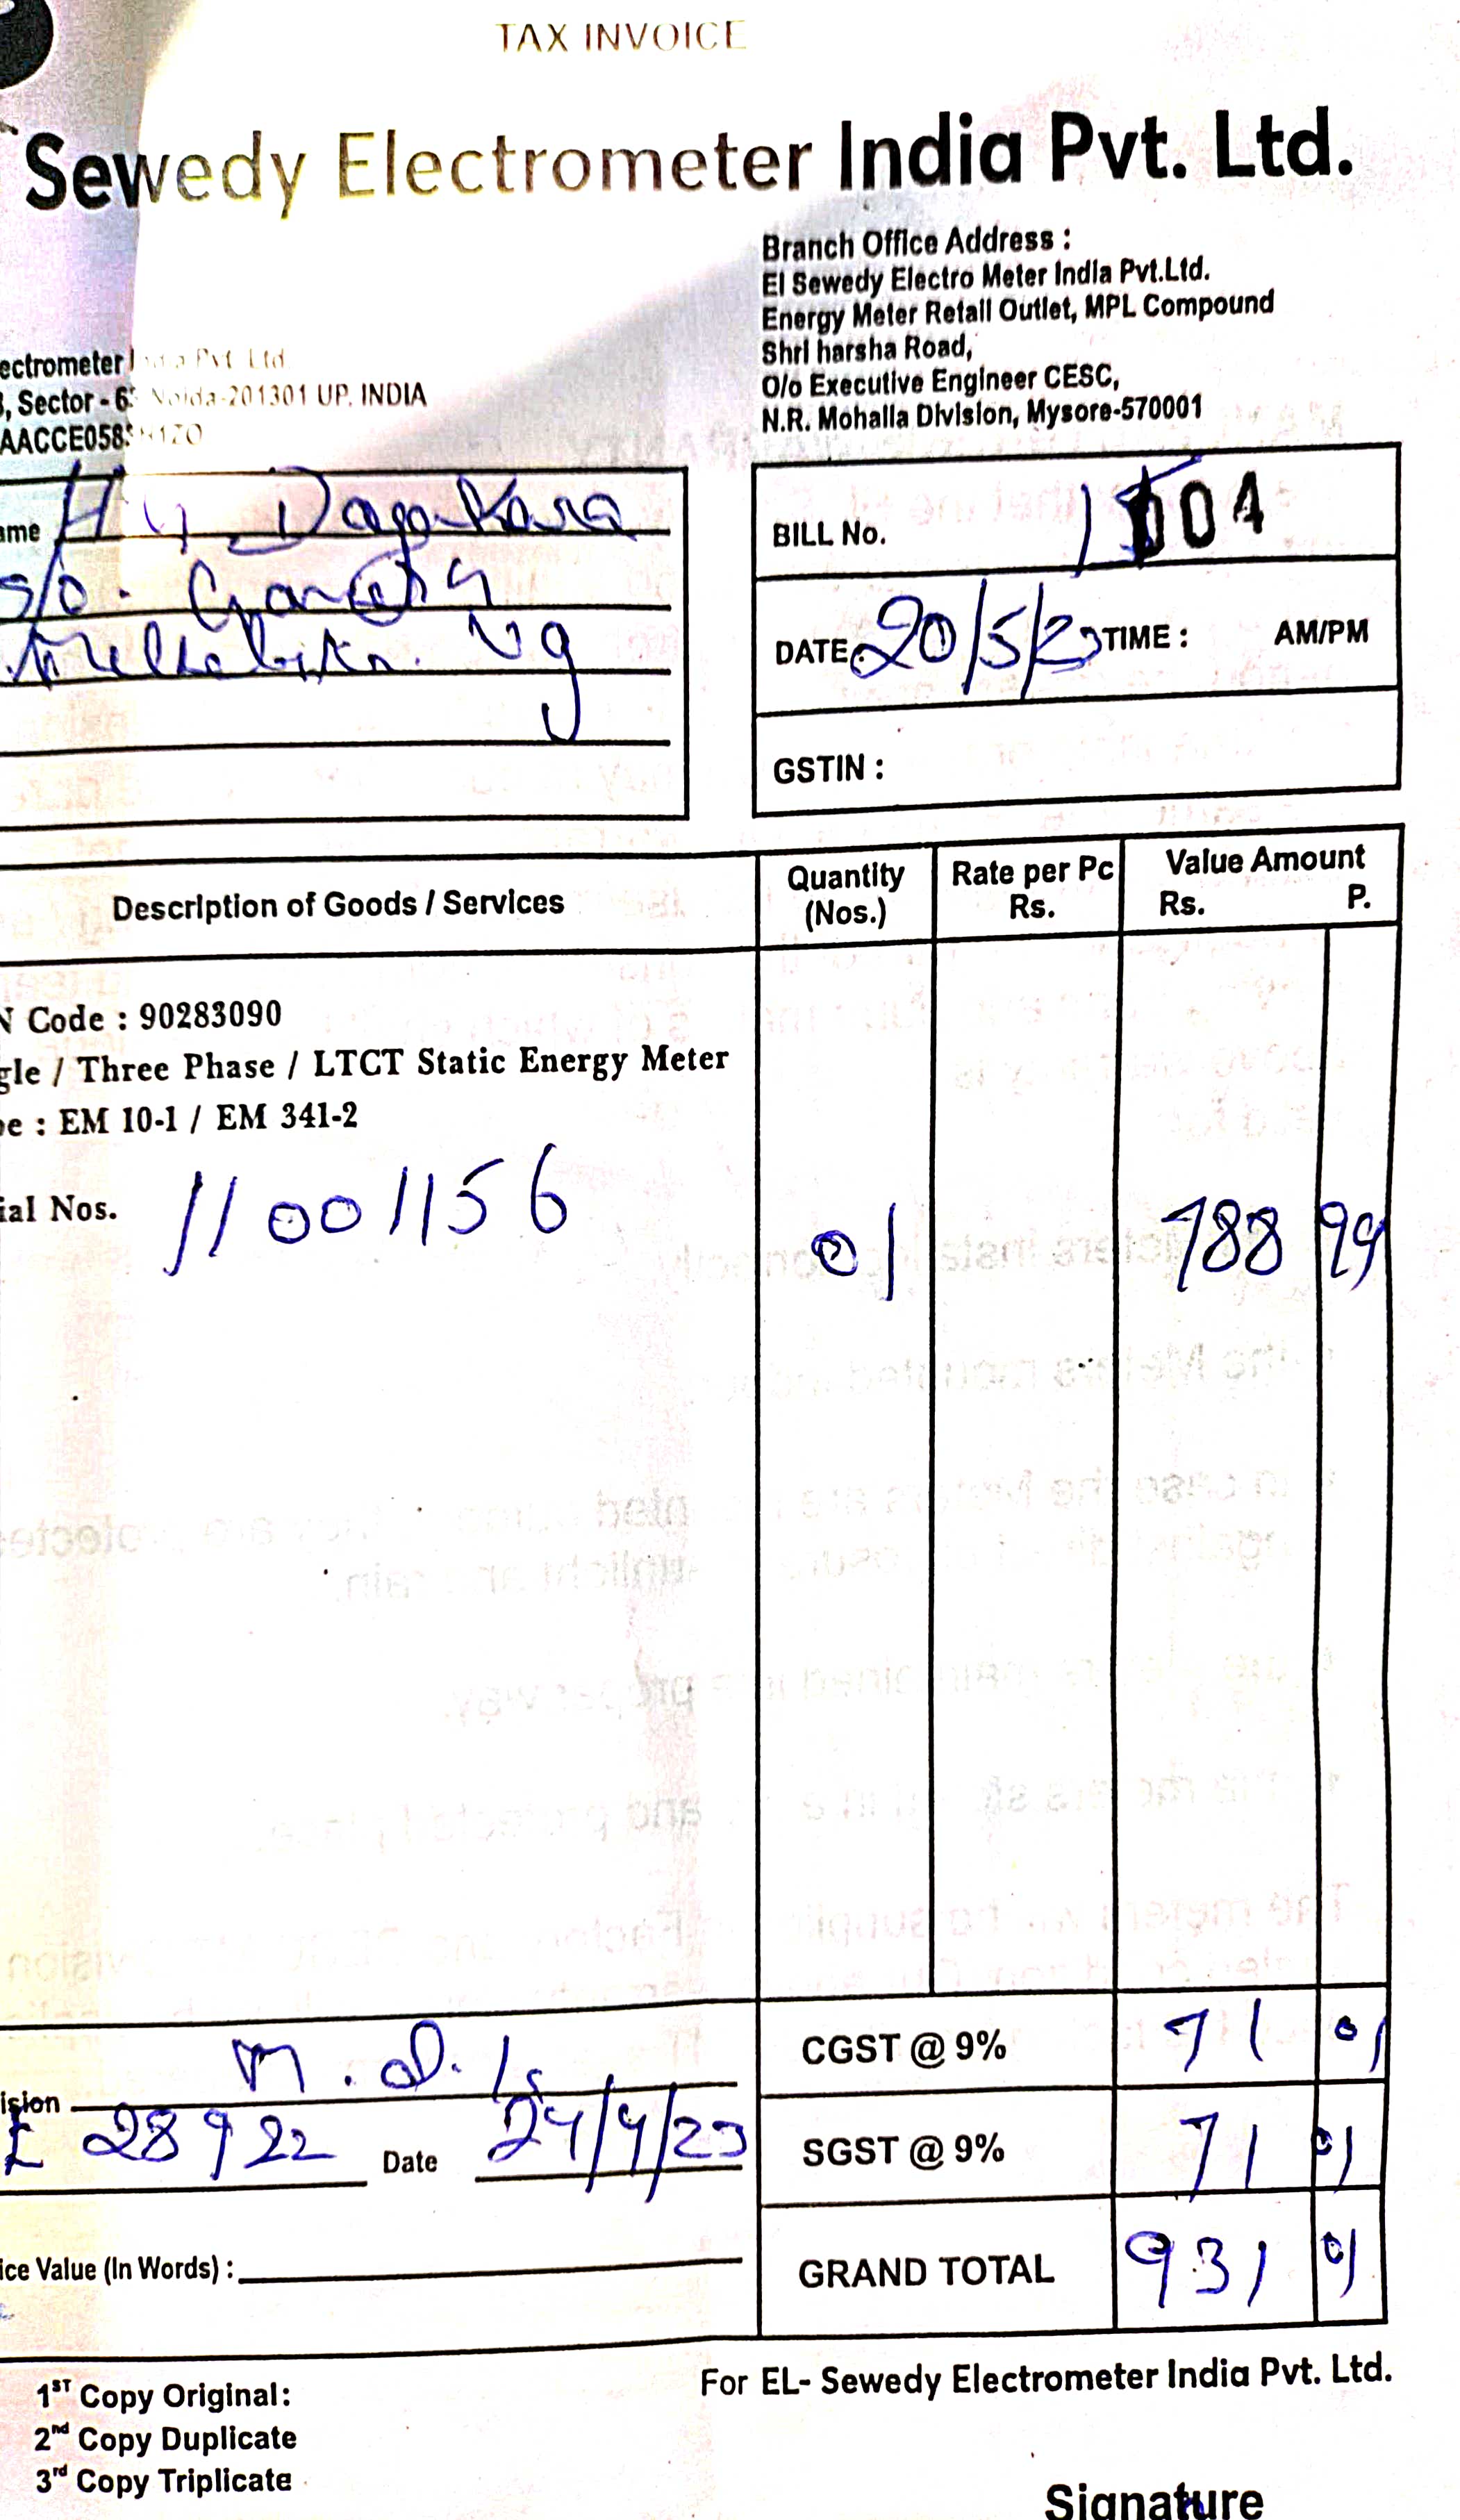 TAX INVOICE
Sewedy Electrometer India Pvt. Ltd.
Branch Office Address :
El Sewedy Electro Meter India Pvt.Ltd.
Energy Meter Retail Outlet, MPL Compound
Shri harsha Road,
O/o Executive Engineer CESC,
N.R. Mohalla Division, Mysore-570001
ectrometer India Pvt. Ltd.
, Sector - 6 Noida-201301 UP. INDIA
AACCE058
ame H
S/o.
BILL No. 004
DATE: 20/5/23 TIME : AM/PM
GSTIN :
Description of Goods / Services Quantity (Nos.) Rate per Pc Rs. Value Amount Rs. P.
N Code : 90283090
gle / Three Phase / LTCT Static Energy Meter
pe : EM 10-1 / EM 341-2
ial Nos. 11001156 01 788 99
CGST @ 9% 71 01
ision
28922 Date 24/4/23
SGST @ 9% 71 01
ice Value (In Words) :
GRAND TOTAL 931 01
For EL- Sewedy Electrometer India Pvt. Ltd.
1ST Copy Original:
2nd Copy Duplicate
3rd Copy Triplicate
Signature